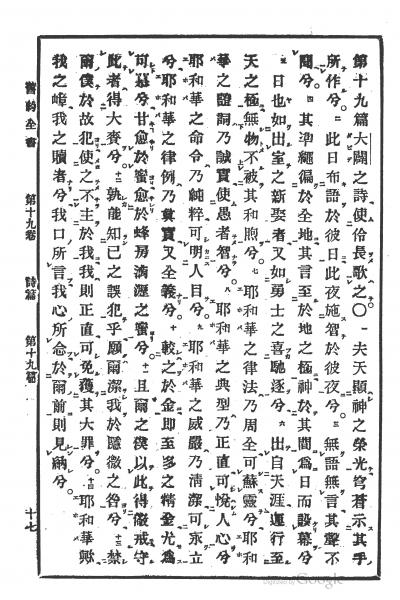 第十九篇大闢之詩使伶長歌之〇一夫天顯神之榮光穹蒼示其手
所作兮。二此日布語於彼日此夜施智於彼夜兮。三無語無言其聲不
聞兮。四其準繩徧於全地其言至於地之極神於其間爲日而設幕兮
五日也如出室之新娶者又如勇士之喜馳逐兮。六出自天涯運行至
天之極無物不被其和煦兮。七耶和華之律法乃周全可蘇靈兮耶和
華之證詞乃誠實使愚者智兮。八耶和華之典型乃正直可悅人心兮
耶和華之命令乃純粹可明人目兮。九耶和華之威嚴乃清潔可永立
兮耶和華之律例乃眞實又全義兮。十較之於金即至多之精金尤爲
可慕兮甘愈於蜜愈於蜂房滴瀝之蜜兮。十一且爾之僕以此得儆戒守
此者得大賚兮。十二孰能知己之誤犯乎願爾潔我於隱微之咎兮。十三禁
爾僕於故犯使之不主於我我則正直可免獲其大罪兮。十四耶和華歟
我之我之贖者兮我口所言我心所念於爾前則見納兮。
舊約全書 第十九卷 詩篇 第十九篇 十七
Digitized by Google